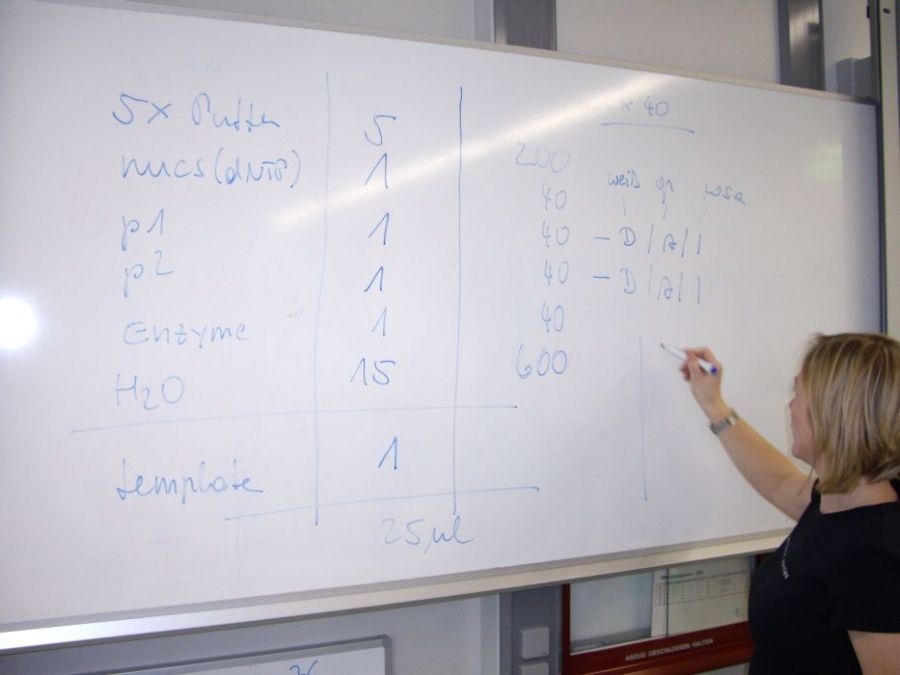 5x Puffer 5 200 x 40
nucs (dNTP) 1 40 weiß gr rosa
p1 1 40 - D / A / 1
p2 1 40 - D / A / 1
Enzyme 1 40
H2O 15 600
template 1
25 µl
ABZUG GESCHLOSSEN HALTEN